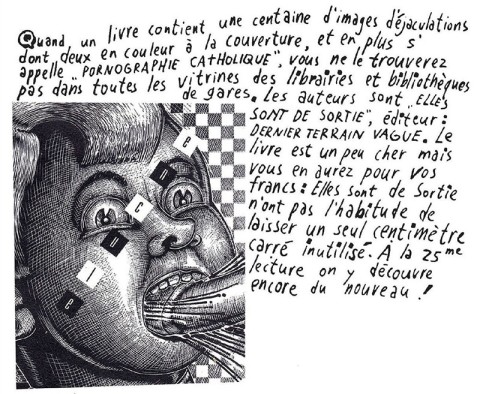 Quand un livre contient une centaine d'images d'éjaculations
dont deux en couleur à la couverture, et en plus s'
appelle "PORNOGRAPHIE CATHOLIQUE", vous ne le trouverez
pas dans toutes les vitrines des librairies et bibliothèques
de gares. Les auteurs sont "ELLES
SONT DE SORTIE", éditeur:
DERNIER TERRAIN VAGUE. Le
livre est un peu cher mais
vous en aurez pour vos
francs: Elles sont de Sortie
n'ont pas l'habitude de
laisser un seul centimètre
carré inutilisé. A la 25me
lecture on y découvre
encore du nouveau!